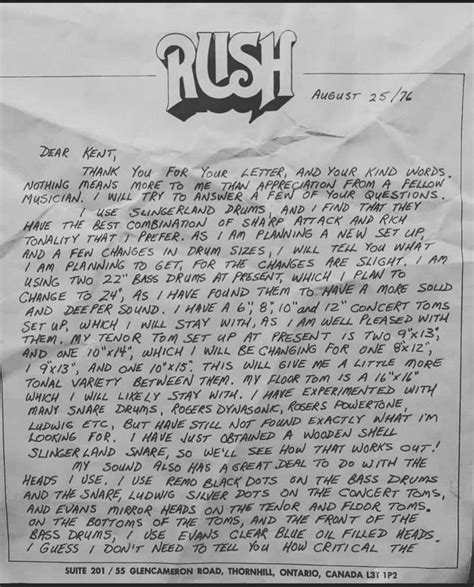 RUSH
AUGUST 25/76
DEAR KENT,
THANK YOU FOR YOUR LETTER, AND YOUR KIND WORDS.
NOTHING MEANS MORE TO ME THAN APPRECIATION FROM A FELLOW
MUSICIAN. I WILL TRY TO ANSWER A FEW OF YOUR QUESTIONS.
I USE SLINGERLAND DRUMS, AND I FIND THAT THEY
HAVE THE BEST COMBINATION OF SHARP ATTACK AND RICH
TONALITY THAT I PREFER. AS I AM PLANNING A NEW SET UP,
AND A FEW CHANGES IN DRUM SIZES, I WILL TELL YOU WHAT
I AM PLANNING TO GET, FOR THE CHANGES ARE SLIGHT. I AM
USING TWO 22" BASS DRUMS AT PRESENT, WHICH I PLAN TO
CHANGE TO 24", AS I HAVE FOUND THEM TO HAVE A MORE SOLID
AND DEEPER SOUND. I HAVE A 6", 8", 10" AND 12" CONCERT TOMS
SET UP, WHICH I WILL STAY WITH, AS I AM WELL PLEASED WITH
THEM. MY TENOR TOM SET UP AT PRESENT IS TWO 9"X13",
AND ONE 10"X14", WHICH I WILL BE CHANGING FOR ONE 8"X12",
1 9"X13", AND ONE 10"X15". THIS WILL GIVE ME A LITTLE MORE
TONAL VARIETY BETWEEN THEM. MY FLOOR TOM IS A 16"X16"
WHICH I WILL LIKELY STAY WITH. I HAVE EXPERIMENTED WITH
MANY SNARE DRUMS, ROGERS DYNASONIC, ROGERS POWERTONE,
LUDWIG ETC, BUT HAVE STILL NOT FOUND EXACTLY WHAT I'M
LOOKING FOR. I HAVE JUST OBTAINED A WOODEN SHELL
SLINGERLAND SNARE, SO WE'LL SEE HOW THAT WORKS OUT!
MY SOUND ALSO HAS A GREAT DEAL TO DO WITH THE
HEADS I USE. I USE REMO BLACK DOTS ON THE BASS DRUMS
AND THE SNARE, LUDWIG SILVER DOTS ON THE CONCERT TOMS,
AND EVANS MIRROR HEADS ON THE TENOR AND FLOOR TOMS.
ON THE BOTTOMS OF THE TOMS, AND THE FRONT OF THE
BASS DRUMS, I USE EVANS CLEAR BLUE OIL FILLED HEADS.
I GUESS I DON'T NEED TO TELL YOU HOW CRITICAL THE
SUITE 201 / 55 GLENCAMERON ROAD, THORNHILL, ONTARIO, CANADA L3T 1P2